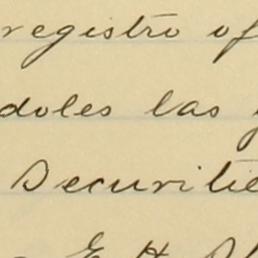 registro of
doles las
Securitie
E. H.